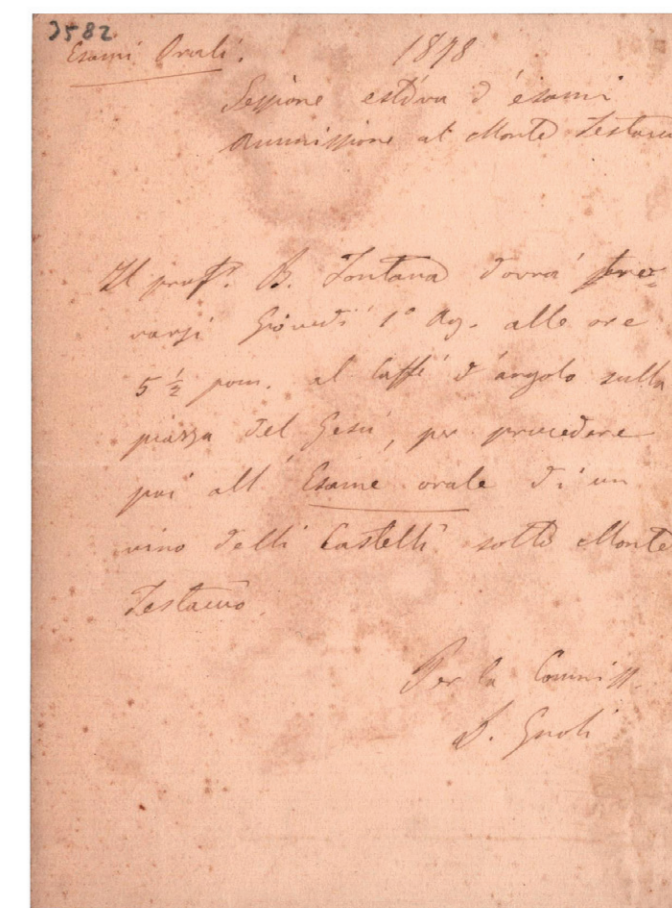 3582
Esami Orali. 1878
Sessione estiva d'esami
Ammissione al Monte Testaccio
Il prof. B. Fontana dovrà tro-
varsi Giovedì 1° Ag. alle ore
5 ½ pom. al Caffè d'angolo sulla
piazza del Gesù, per procedere
poi all'Esame orale di un
vino delli Castelli sotto Monte
Testaccio.
Per la Commiss.
D. Gnoli